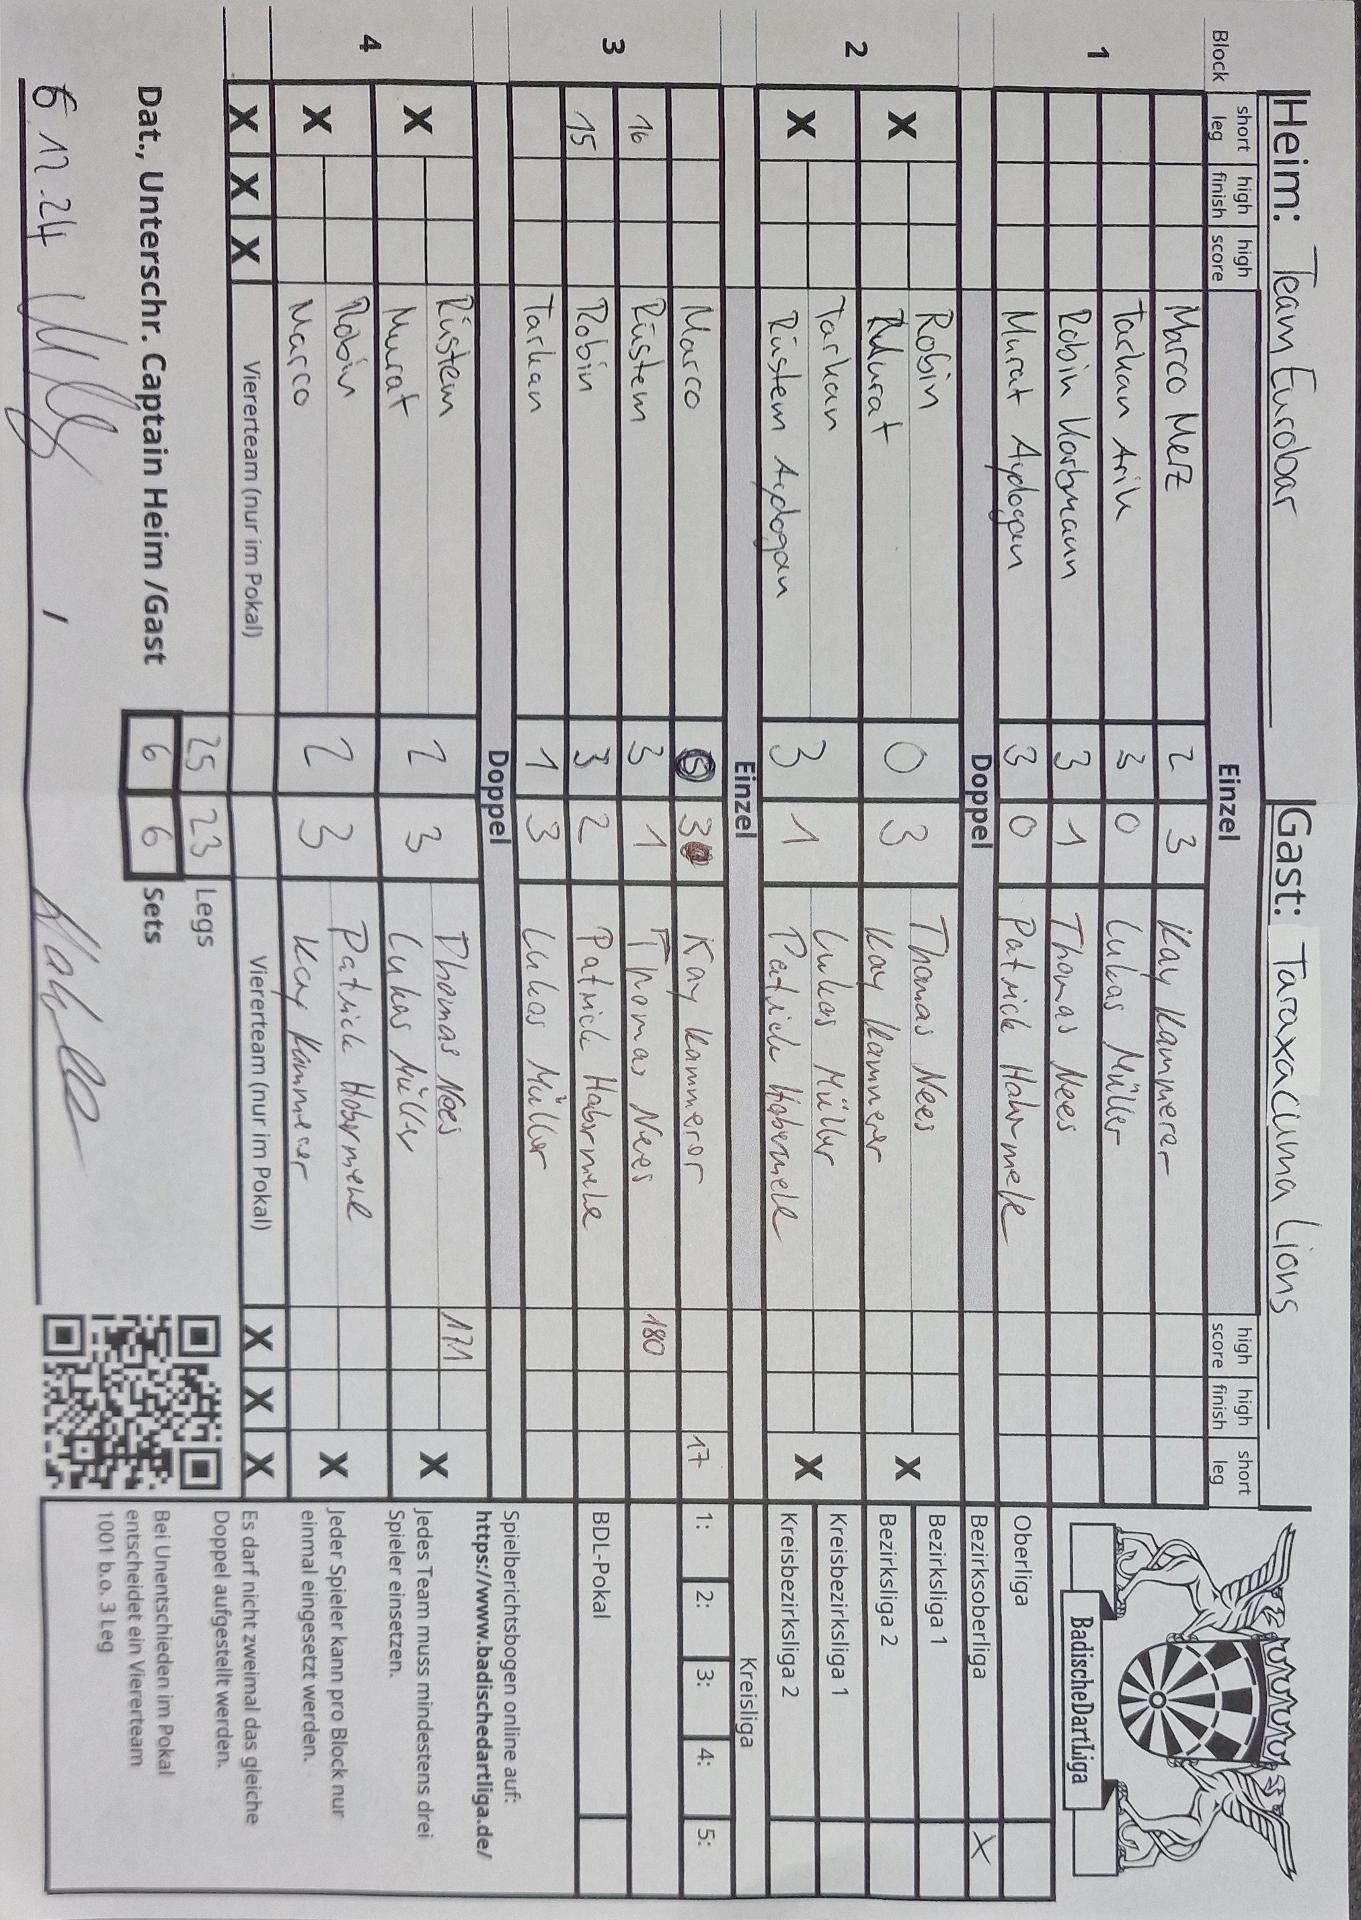 Heim: Team Eurobar Gast: Taraxacuma Lions
Block short leg high finish high score Einzel high score high finish short leg
1
Marco Merz 2 3 Kay Kammerer
Tarkan Arik 3 0 Lukas Müller
Robin Karbmann 3 1 Thomas Nees
Murat Aydogan 3 0 Patrick Habermehl
Doppel
2
X Robin 0 3 Thomas Nees X
Murat Kay Kammerer
X Tarkan 3 1 Lukas Müller X
Rüstem Aydogan Patrick Habermehl
Einzel
3
Marco 3 Kay Kammerer 17
16 Rüstem 3 1 Thomas Nees 180
15 Robin 3 2 Patrick Habermehl
Tarkan 1 3 Lukas Müller
Doppel
4
X Rüstem 2 3 Thomas Nees 171 X
Murat Lukas Müller
X Robin 2 3 Patrick Habermehl X
Marco Kay Kammerer
X X X Viererteam (nur im Pokal) Viererteam (nur im Pokal) X X X
25 23 Legs
Dat., Unterschr. Captain Heim /Gast 6 6 Sets
6.12.24
BadischeDartLiga
Oberliga
Bezirksoberliga X
Bezirksliga 1
Bezirksliga 2
Kreisbezirksliga 1
Kreisbezirksliga 2
Kreisliga
1: 2: 3: 4: 5:
BDL-Pokal
Spielberichtsbogen online auf:
https://www.badischedartliga.de/
Jedes Team muss mindestens drei
Spieler einsetzen.
Jeder Spieler kann pro Block nur
einmal eingesetzt werden.
Es darf nicht zweimal das gleiche
Doppel aufgestellt werden.
Bei Unentschieden im Pokal
entscheidet ein Viererteam
1001 b.o. 3 Leg